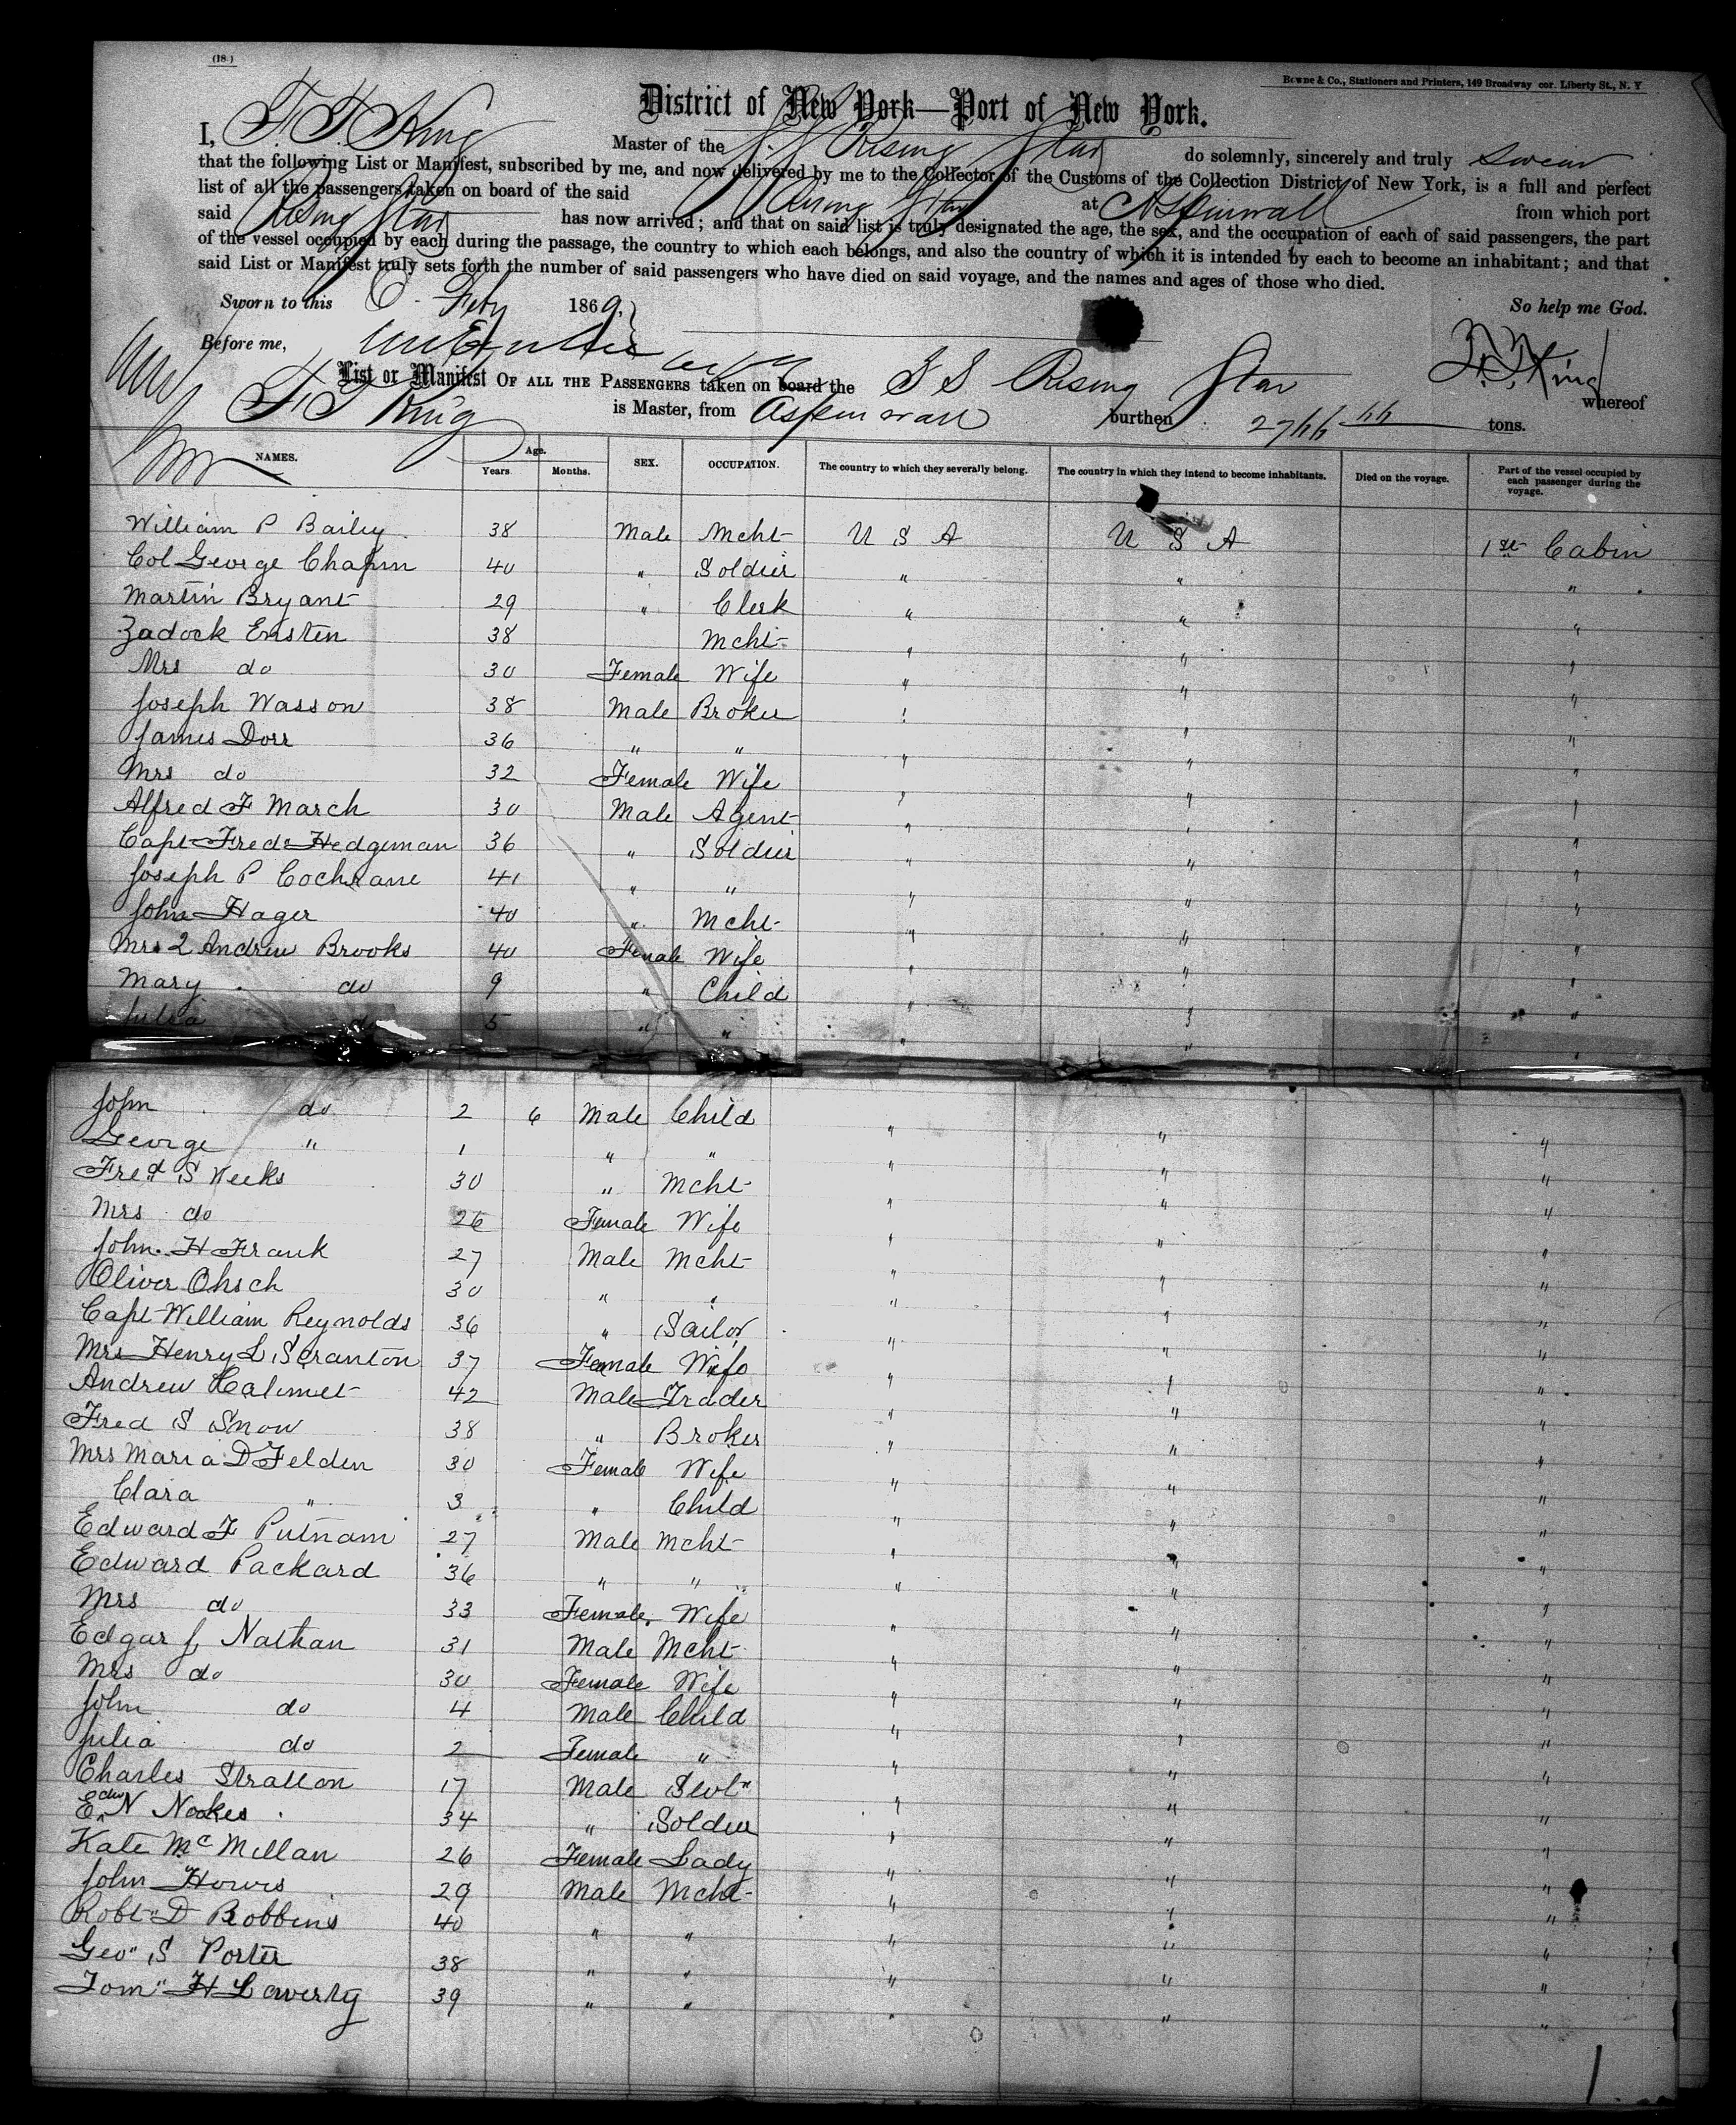 (18)
Bowne & Co., Stationers and Printers, 149 Broadway cor. Liberty St., N. Y
District of New York—Port of New York.
I, F. T. King Master of the S. S. Rising Star do solemnly, sincerely and truly swear
that the following List or Manifest, subscribed by me, and now delivered by me to the Collector of the Customs of the Collection District of New York, is a full and perfect
list of all the passengers taken on board of the said Rising Star at Aspinwall from which port
said Rising Star has now arrived; and that on said list is truly designated the age, the sex, and the occupation of each of said passengers, the part
of the vessel occupied by each during the passage, the country to which each belongs, and also the country of which it is intended by each to become an inhabitant; and that
said List or Manifest truly sets forth the number of said passengers who have died on said voyage, and the names and ages of those who died.
Sworn to this 6 Feby 1869, So help me God.
Before me, F. T. King
List or Manifest OF ALL THE PASSENGERS taken on board the S S Rising Star whereof
F. T King is Master, from Aspinwall burthen 2766 66 tons.
NAMES. Age. Years. Months. SEX. OCCUPATION. The country to which they severally belong. The country in which they intend to become inhabitants. Died on the voyage. Part of the vessel occupied by each passenger during the voyage.
William P Bailey 38 Male Mcht U S A U S A 1st Cabin
Col George Chapin 40 " Soldier " " "
Martin Bryant 29 " Clerk " " "
Zadock Ensten 38 Mcht " " "
Mrs do 30 Female Wife " " "
Joseph Wasson 38 Male Broker " " "
James Dorr 36 " " " " "
Mrs do 32 Female Wife " " "
Alfred F March 30 Male Agent " " "
Capt Fred Hedgeman 36 " Soldier " " "
Joseph P Cochrane 41 " " " " "
John Hager 40 " Mcht " " "
Mrs Andrew Brooks 40 Female Wife " " "
Mary do 9 " Child " " "
Julia d 5 " " " " "
John do 2 6 Male Child " " "
George " 1 " " " " "
Fred S Weeks 30 " Mcht " " "
Mrs do 26 Female Wife " " "
John H Frank 27 Male Mcht " " "
Oliver Ohsch 30 " " " " "
Capt William Reynolds 36 " Sailor " " "
Mrs Henry L Scranton 37 Female Wife " " "
Andrew Calimet 42 Male Trader " " "
Fred S Snow 38 " Broker " " "
Mrs Maria D Felden 30 Female Wife " " "
Clara " 3 " Child " " "
Edward F Putnam 27 Male Mcht " " "
Edward Packard 36 " " " " "
Mrs do 33 Female Wife " " "
Edgar J Nathan 31 Male Mcht " " "
Mrs do 30 Female Wife " " "
John do 4 Male Child " " "
Julia do 2 Female " " " "
Charles Stratton 17 Male Sevt " " "
Edw N Noakes 34 " Soldier " " "
Kate McMillan 26 Female Lady " " "
John Howes 29 Male Mcht " " "
Robt D Robbins 40 " " " " "
Geo S Porter 38 " " " " "
Tom H Laverty 39 " " " " "
1